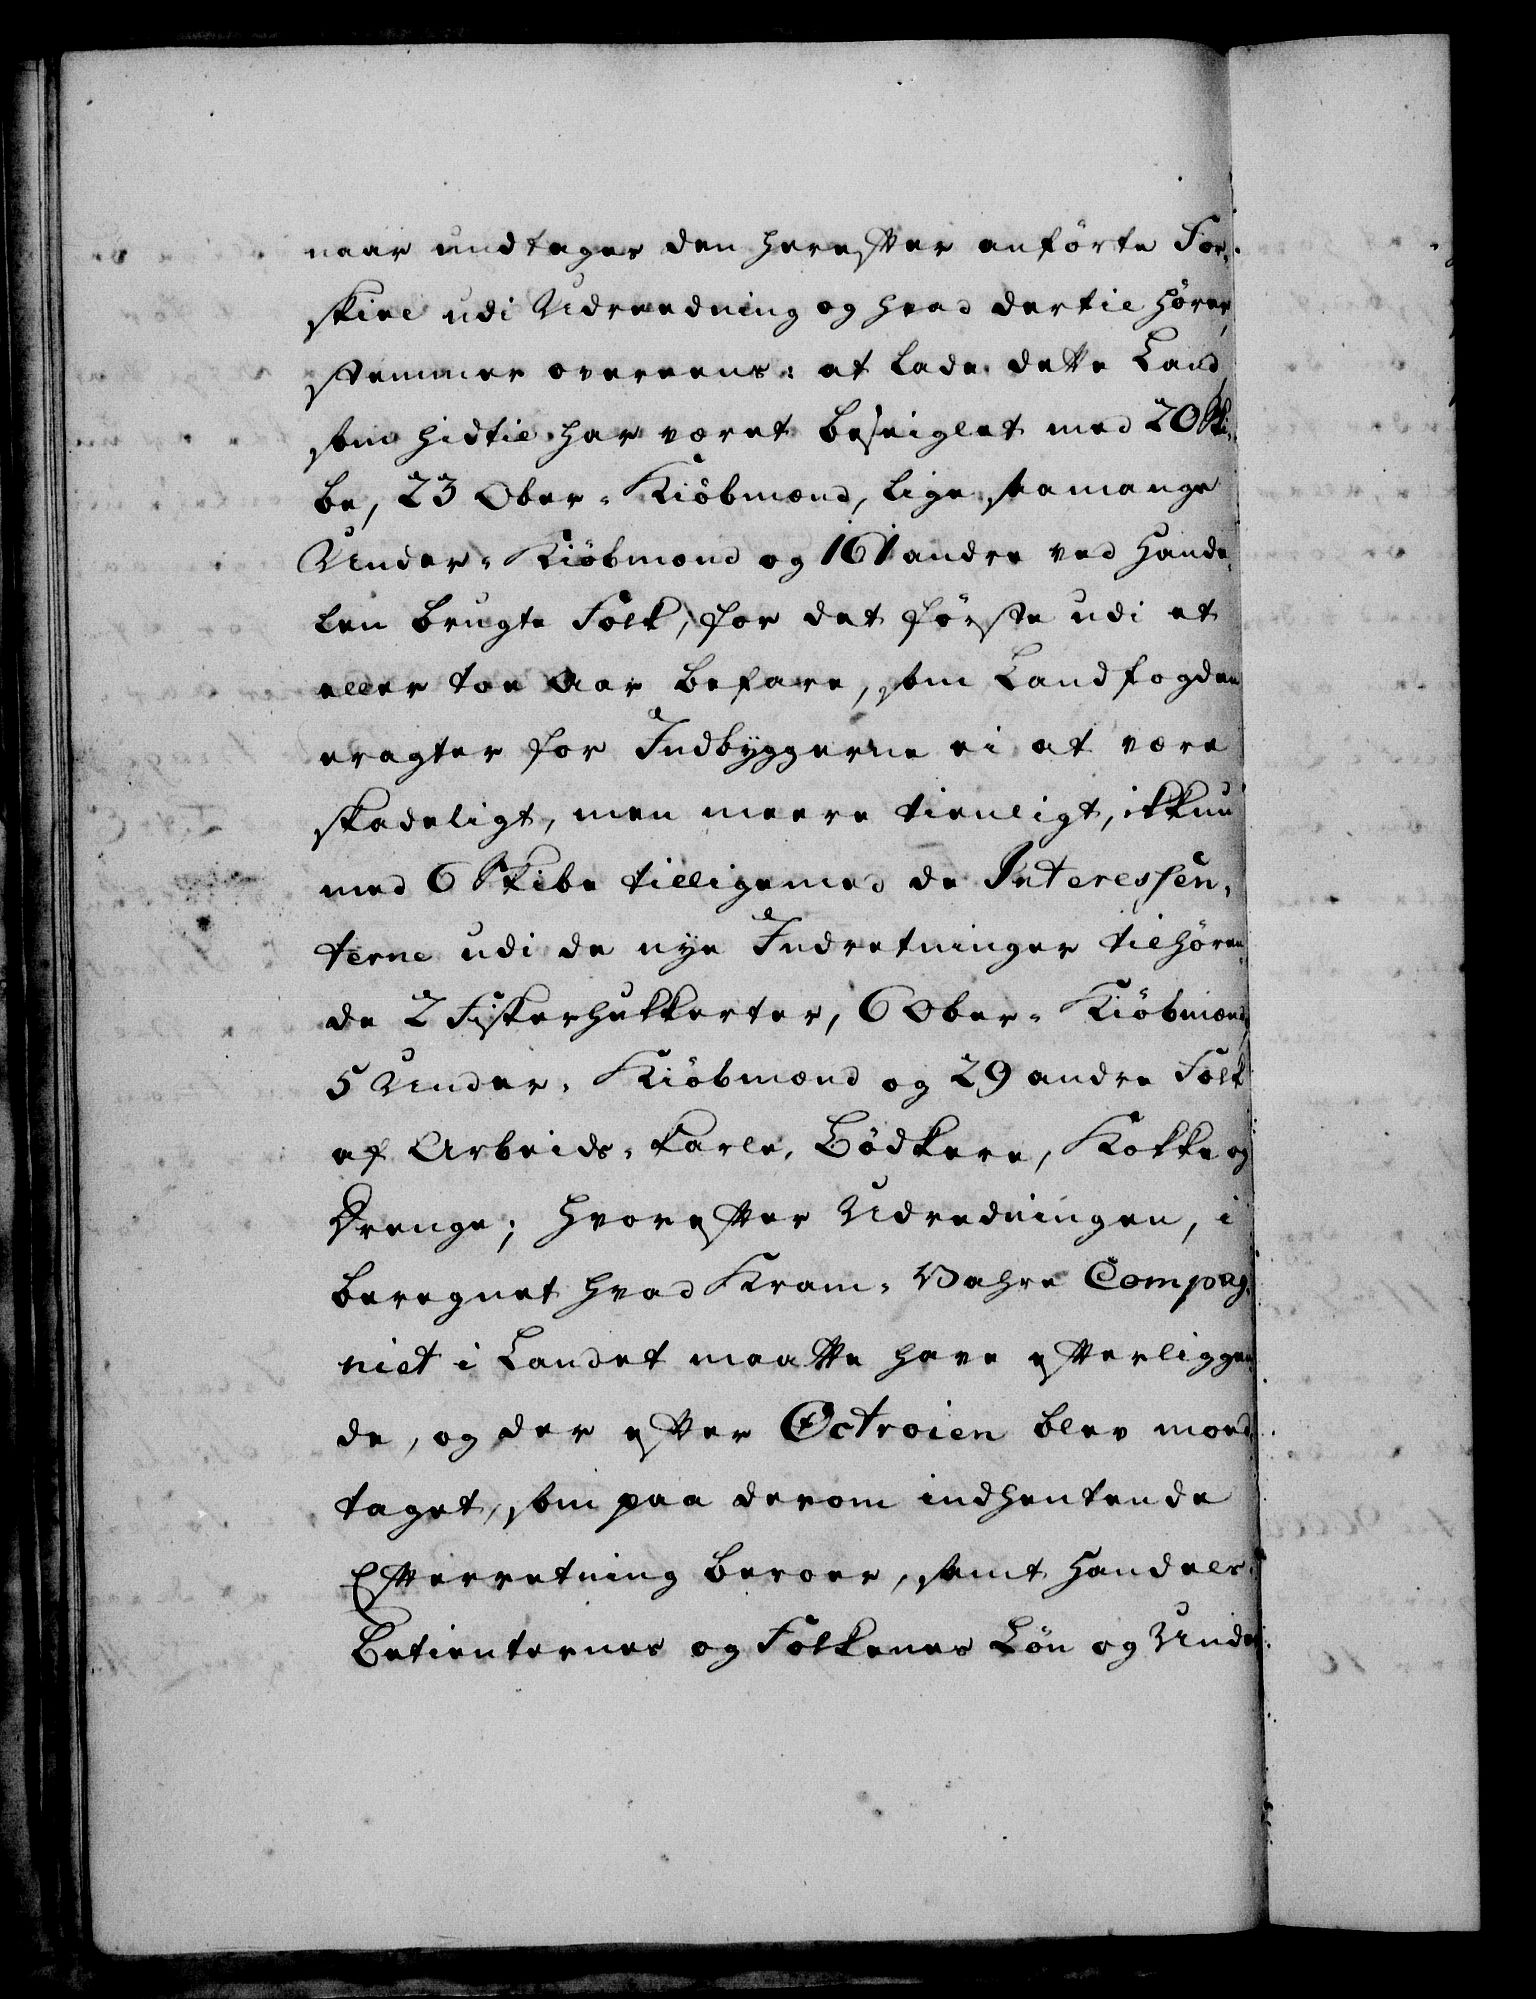 naar undtages den herefter anførte For-
skiel udi Udreedning og hvad dertil hører,
stemmer overeens: at lade dette Land,
som hidtil har været beseiglet med 20 Ski-
be, 23 Ober-Kiöbmænd, lige saamange
Under-Kiöbmænd og 161 andre ved Hande-
len brugte Folk, for det første udi et
eller toe Aar befare, som Landfogden
eragter for Indbyggerne ei at være
skadeligt, men meere tienligt, ikkun
med 6 Skibe tilligemed de Interessen-
terne udi de nye Indretninger tilhören-
de 2 Fiskerhukkerter, 6 Ober-Kiöbmænd,
5 Under-Kiöbmænd og 29 andre Folk
af Arbeids-Karle, Bödkere, Kokke og
Drenge; hvorefter Udredningen, i
beregnet hvad Kram-Vahre Compag-
niet i Landet maatte have efterliggen-
de, og der efter Octroien blev mod-
taget, som paa derom indhentende
Efterretning beroer, samt Handels-
Betienternes og Folkenes Løn og Under-